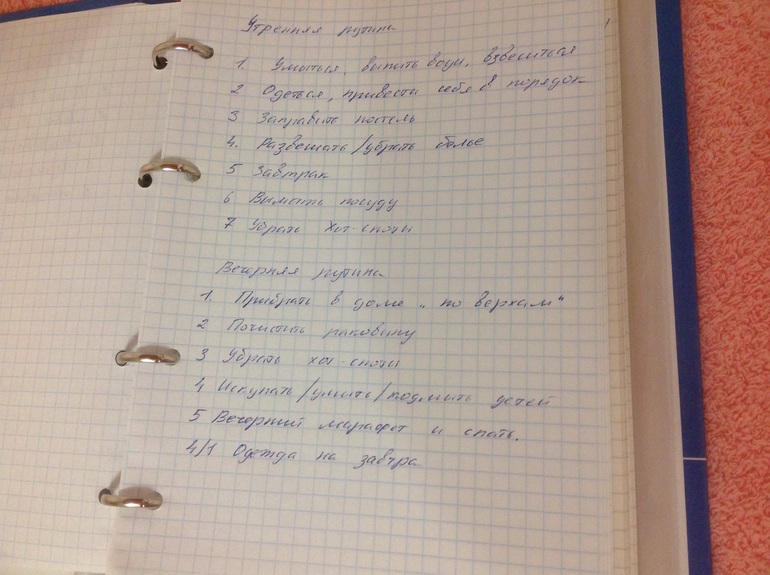 Утренняя рутина
1. Умыться, выпить воды, взвеситься
2 Одеться, привести себя в порядок
3 Заправить постель
4. Развешать/убрать белье
5 Завтрак
6 Вымыть посуду
7 Убрать хот-споты
Вечерняя рутина
1. Прибрать в доме „по верхам“
2 Почистить раковину
3 Убрать хот-споты
4 Искупать/умыть/подмыть детей
5 Вечерний марафет и спать.
4/1 Одежда на завтра